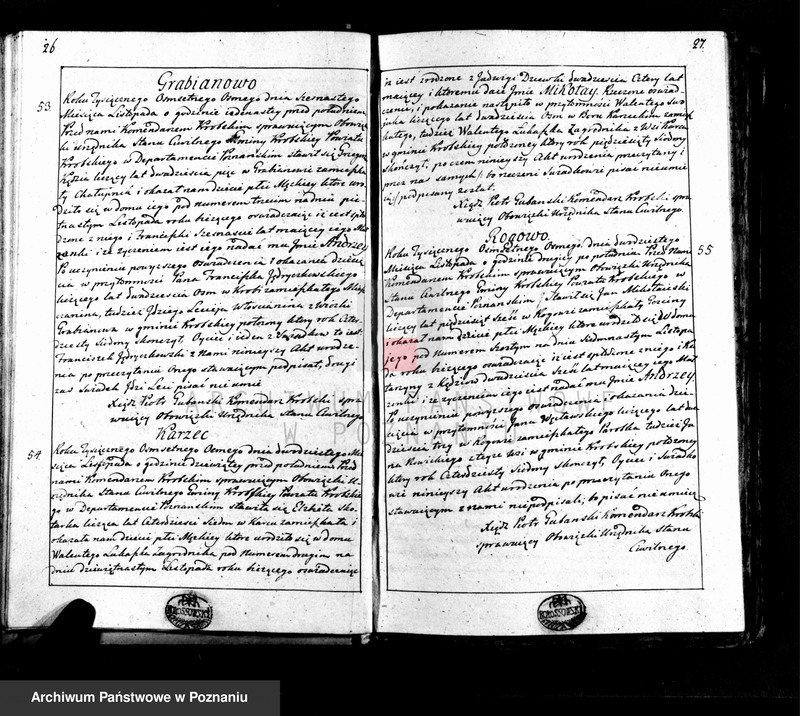 26
Grabianowo
53
Roku Tysięcznego Osmsetnego Osmego dnia Szesnastego
Miesiąca Listopada o godzinie iedenastey przed południem
Przed nami Komendarzem Krobskim sprawuiącym Obowią-
zki Urzędnika Stanu Cywilnego Gminy Krobskiey Powiatu
Krobskiego w Departamencie Poznanskim stawił się Grzegorz
Kędzia liczący lat dwadzieścia pięc w Grabianowie zamieszka
ły Chałupnik i okazał nam dziecie płci Męzkiey które uro-
dziło się w domu iego pod numerem trzecim na dniu pię-
tnastym Listopada roku bieżącego oswiadczaiąc iż iest spło-
dzone z niego i Franciszki Szesnaście lat maiącey iego Mał-
żonki i że życzeniem iest iego nadać mu Jmie Andrzey
Po uczynieniu powyższego oswiadczenia i okazaniu dzieci-
cia w przytomności Pana Franciszka Jędryczkowskiego
liczącego lat dwadzieścia Osm w Krobi zamieszkałego Miesz-
czanina, tudzież Józego Lecieja Włościanina z Wioski
Grabianowa w gminie Krobskiey położony który rok Czter-
dziesty Siodmy skończył. Oyciec i ieden z Swiadkow to iest:
Franciszek Jędryczkowski z Nami ninieyszy Akt urodze-
nia po przeczytaniu Onego stawaiącym podpisał, drugi
zas Swiadek Józ: Leci pisać nie umie
Xiądz Piotr Gubanski Komendarz Krobski spra-
wuiący Obowiązki Urzędnika Stanu Cywilnego
Karzec
54
Roku Tysięcznego Osmsetnego Osmego dnia dwudziestego Mie-
siąca Listopada o godzinie dziewiątey przed południem Przed
nami Komendarzem Krobskim sprawuiącym Obowiązki U-
rzędnika Stanu Cywilnego Gminy Krobskiey Powiatu Krobskie-
go w Departamencie Poznanskim stawiła się Elżbieta Sko-
tarka licząca lat Czterdzieści Siedm w Karcu zamieszkała i
okazała nam dziecie płci Męzkiey które urodziło się w domu
Walentego Zagrodnika pod numerem drugim na
dniu dziewiętnastym Listopada roku bieżącego oswiadczaiąc
27
iż iest zrodzone z Jadwigi Dziewki dwadzieścia Cztery lat
maiącey i któremu daie Jmie Mikołay. Rzeczone oswiad-
czenie, i pokazanie nastąpiło w przytomności Walentego
liczącego lat dwadzieścia Osm w Karzeckim zamiesz-
kałego, tudzież Walentego Zagrodnika z Wsi Karca
w gminie Krobskiey położoney który rok pięćdziesiąty Siodmy
skończył, po czem ninieyszy Akt urodzenia przeczytany i
przez nas samych /: bo rzeczeni Swiadkowie pisać nieumie-
ią :/ podpisany został.
Xiądz Piotr Gubanski Komendarz Krobski spra-
wuiący Obowiązki Urzędnika Stanu Cywilnego.
Rogowo
55
Roku Tysięcznego Osmsetnego Osmego, dnia dwudziestego
Miesiąca Listopada o godzinie drugiey po południu Przed Nami
Komendarzem Krobskim sprawuiącym Obowiązki Urzędnika
Stanu Cywilnego Gminy Krobskiey Powiatu Krobskiego w
Departamencie Poznanskim Stawił się Jan
liczący lat pięćdziesiąt Sześć w Rogowie zamieszkały
i okazał nam dziecie płci Męzkiey które urodziło się w domu
jego pod numerem Szostym na dniu Siedmnastym Listopa-
da roku bieżącego oswiadczaiąc iż iest spłodzone z niego i Ka-
tarzyny z Kędziow dwadzieścia Sześć lat maiącey iego Mał-
żonki i że życzeniem iego iest nadać mu Jmie Andrzey
Po uczynieniu powyższego oswiadczenia i okazaniu dzie-
cięcia w przytomności Jana liczącego lat dwa-
dzieścia trzy w Rogowie zamieszkałego Parobka tudzież Ja-
na z teyże wsi w gminie Krobskiey położoney
który rok Czterdziesty Siodmy skończył, Oyciec i Swiadko-
wie ninieyszy Akt urodzenia po przeczytaniu Onego
stawaiącym z nami niepodpisali; bo pisać nie umieią
Xiądz Piotr Gubanski Komendarz Krobski
sprawuiący Obowiązki Urzędnika Stanu
Cywilnego.
W POZNANIU
Archiwum Państwowe w Poznaniu